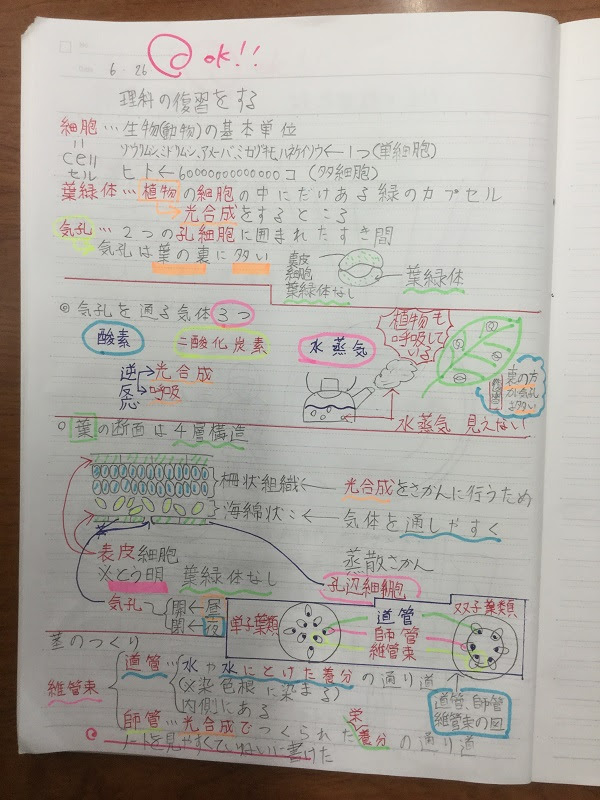 6・26 OK!!
理科の復習をする
細胞…生物(動物)の基本単位
=
Cell
セル
ゾウリムシ,ミドリムシ,アメーバ,ミカヅキモ,ハネケイソウ←1つ(単細胞)
ヒト←60000000000000コ(多細胞)
葉緑体…植物の細胞の中にだけある緑のカプセル
→光合成をするところ
気孔…2つの孔細胞に囲まれたすき間
気孔は葉の裏に多い
真皮
細胞
葉緑体なし
葉緑体
◎気孔を通る気体3つ
酸素
二酸化炭素
水蒸気
植物も
呼吸して
いる
逆
反応
→光合成
→呼吸
裏の方
が気孔
は多い
水蒸気 見えない
○葉の断面は4層構造
柵状組織← 光合成をさかんに行うため
海綿状〃← 気体を通しやすく
表皮細胞
※とう明 葉緑体なし
蒸散さかん
孔辺細胞
気孔
開←昼
閉←夜
単子葉類
道管
師管
維管束
双子葉類
茎のつくり
維管束
道管…水や水にとけた養分の通り道
(※染色根に染まる)
内側にある
師管…光合成でつくられた栄養分の通り道
道管、師管
維管束の図
ノートを見やすくていねいに書けた